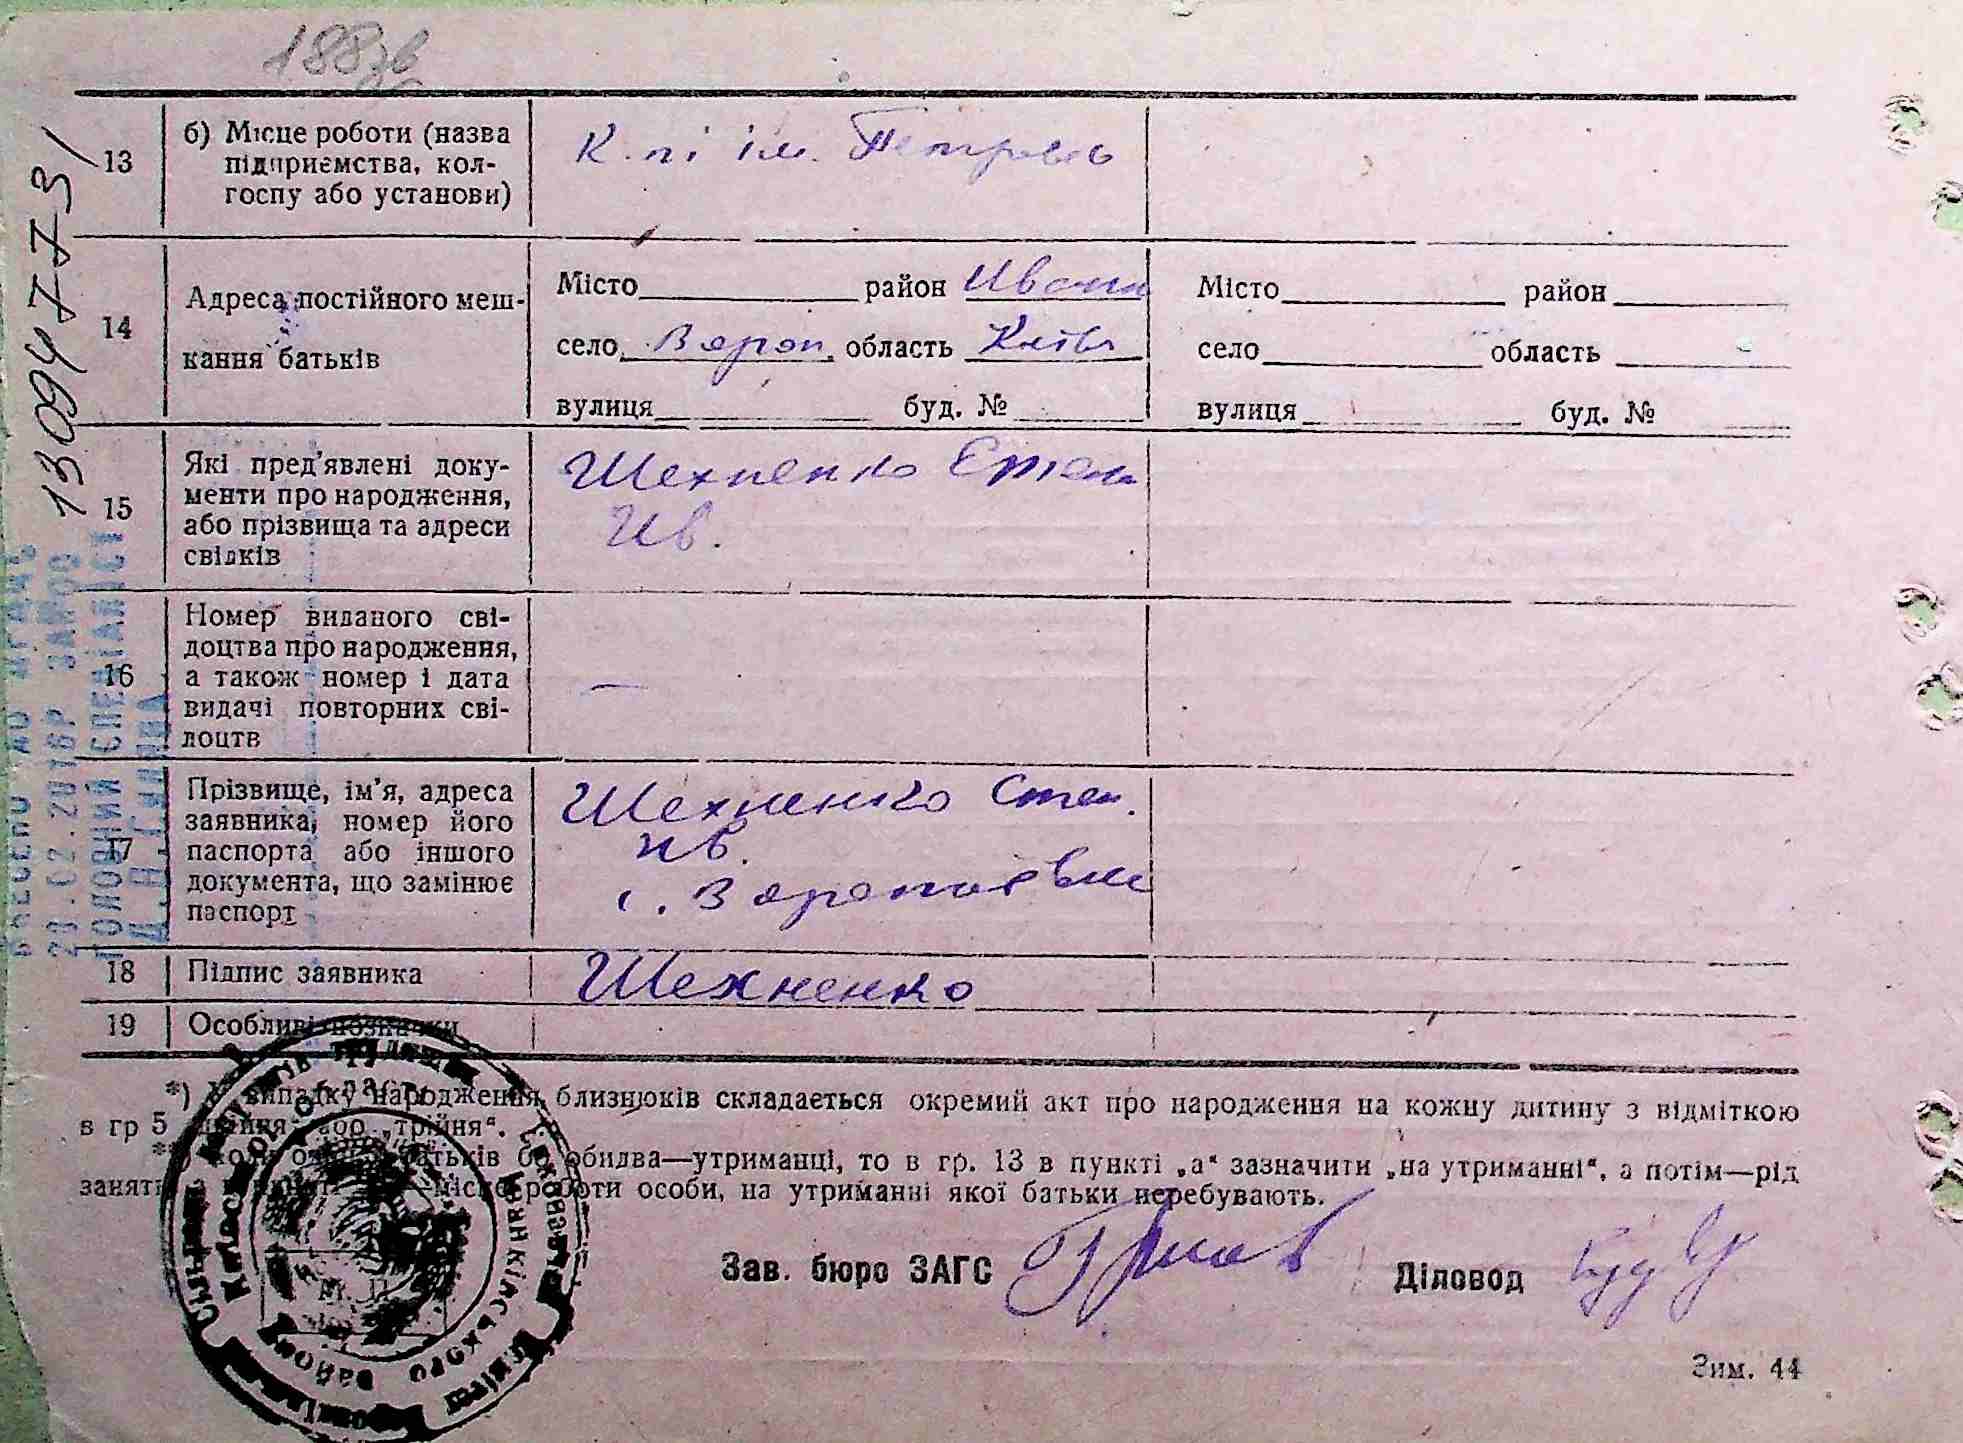 188зв
13 б) Місце роботи (назва
підприємства, кол-
госпу або установи)
К. пі ім.
14 Адреса постійного меш-
кання батьків
Місто район Ивани
село Вороп. область Київ
вулиця буд. №
Місто район
село область
вулиця буд. №
15 Які пред’явлені доку-
менти про народження,
або прізвища та адреси
свідків
Шехненко Степан
Ив.
16 Номер виданого сві-
доцтва про народження,
а також номер і дата
видачі повторних сві-
доцтв
—
17 Прізвище, ім’я, адреса
заявника, номер його
паспорта або іншого
документа, що замінює
паспорт
Шехненко Степ.
ив.
с. Воропаївка
18 Підпис заявника Шехненко
19 Особливі позначки
*) У випадку народження близнюків складається окремий акт про народження на кожну дитину з відміткою
в гр 5 або „трійня“.
обидва—утриманці, то в гр. 13 в пункті „а“ зазначити „на утриманні“, а потім—рід
роботи особи, на утриманні якої батьки перебувають.
Зав. бюро ЗАГС Діловод
Зим. 44
13094773
ВНЕСЕНО ДО
23.02.2018Р
ГОЛОВНИЙ СПЕЦІАЛІСТ